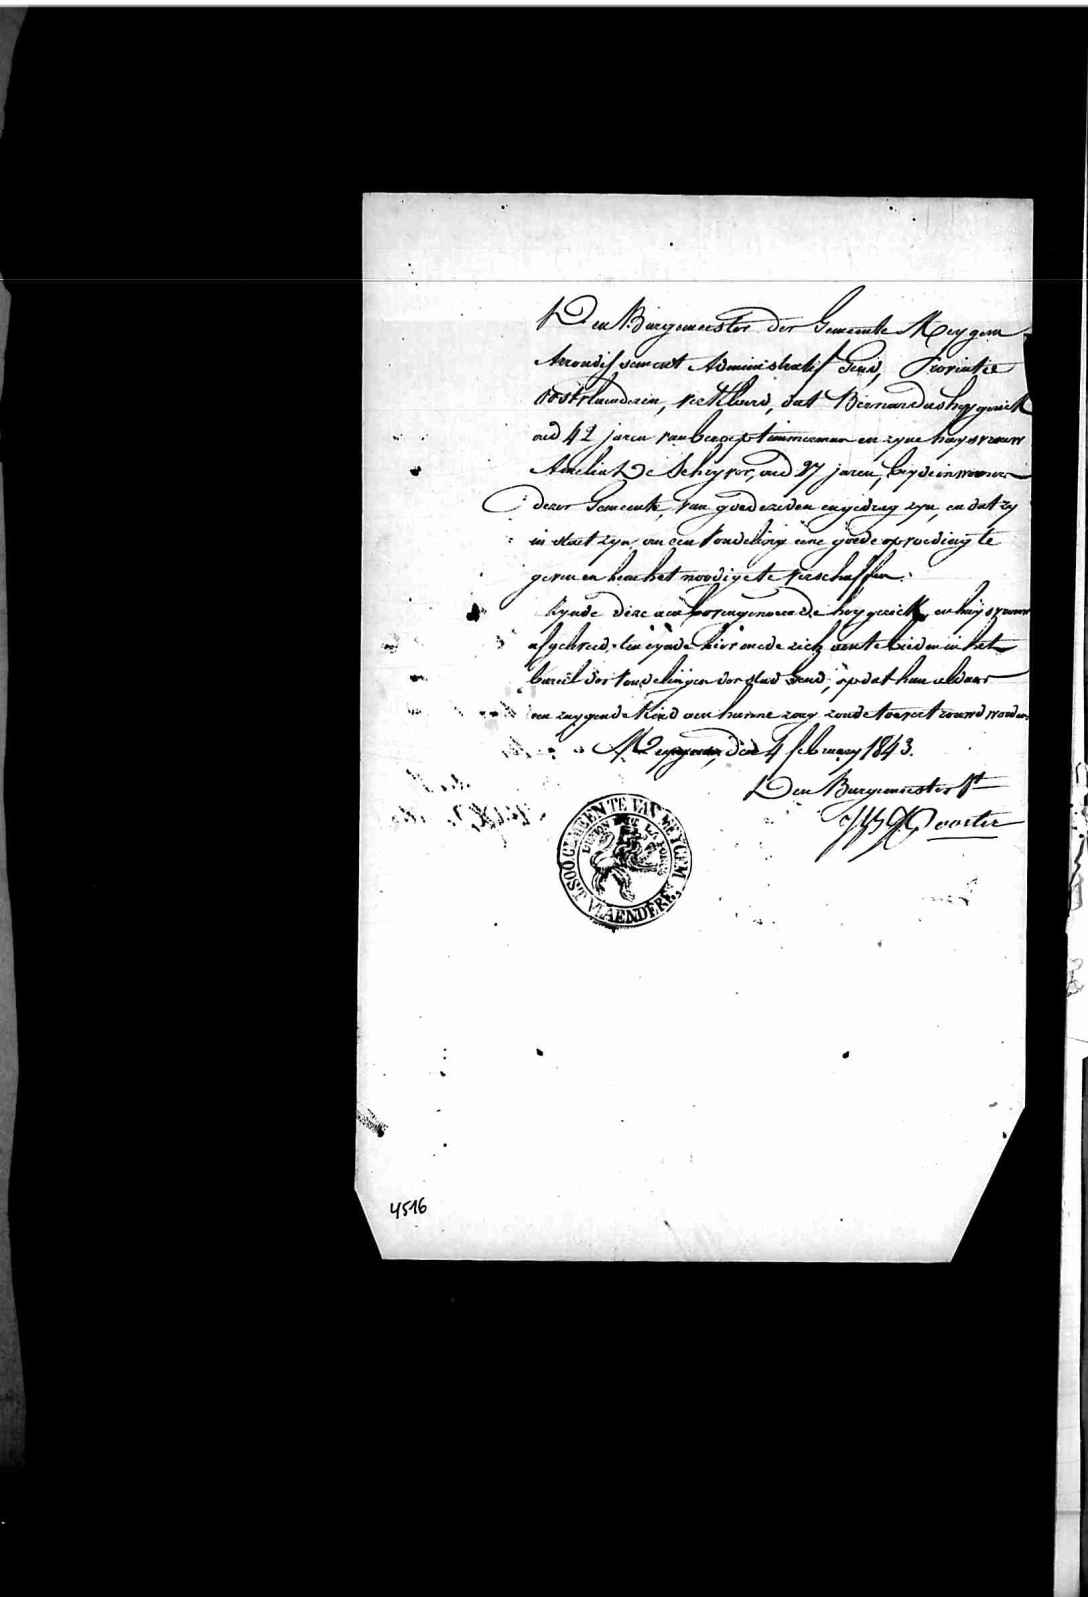 Den Burgemeester der Gemeente Meygem
Arrondissement Administratif Gend, Provintie
Oostvlaenderen, verklaerd, dat Bernardus huygevick
oud 42 jaren van beroep timmerman en zyne huysvrouw
Amelia De Scheyver, oud 27 jaren, beyde inwooners
dezer Gemeente, van goede zeden en gedrag zyn, en dat zy
in staet zyn om een vondeling eene goede opvoeding te
geven en hem het noodige te verschaffen.
Zynde deze aen borengenoemde huygevick en huysvrouw
afgeleverd, ten eynde hier mede zich aen te bieden in het
bureel der vondelingen der stad Gend, opdat hun aldaer
een zuygende kind aen hunne zorg zoude toevertrouwd worden
Meygem, den 4 february 1843.
Den Burgemeester
GEMEENTE VAN MEYGEM
OOST VLAENDEREN
4516